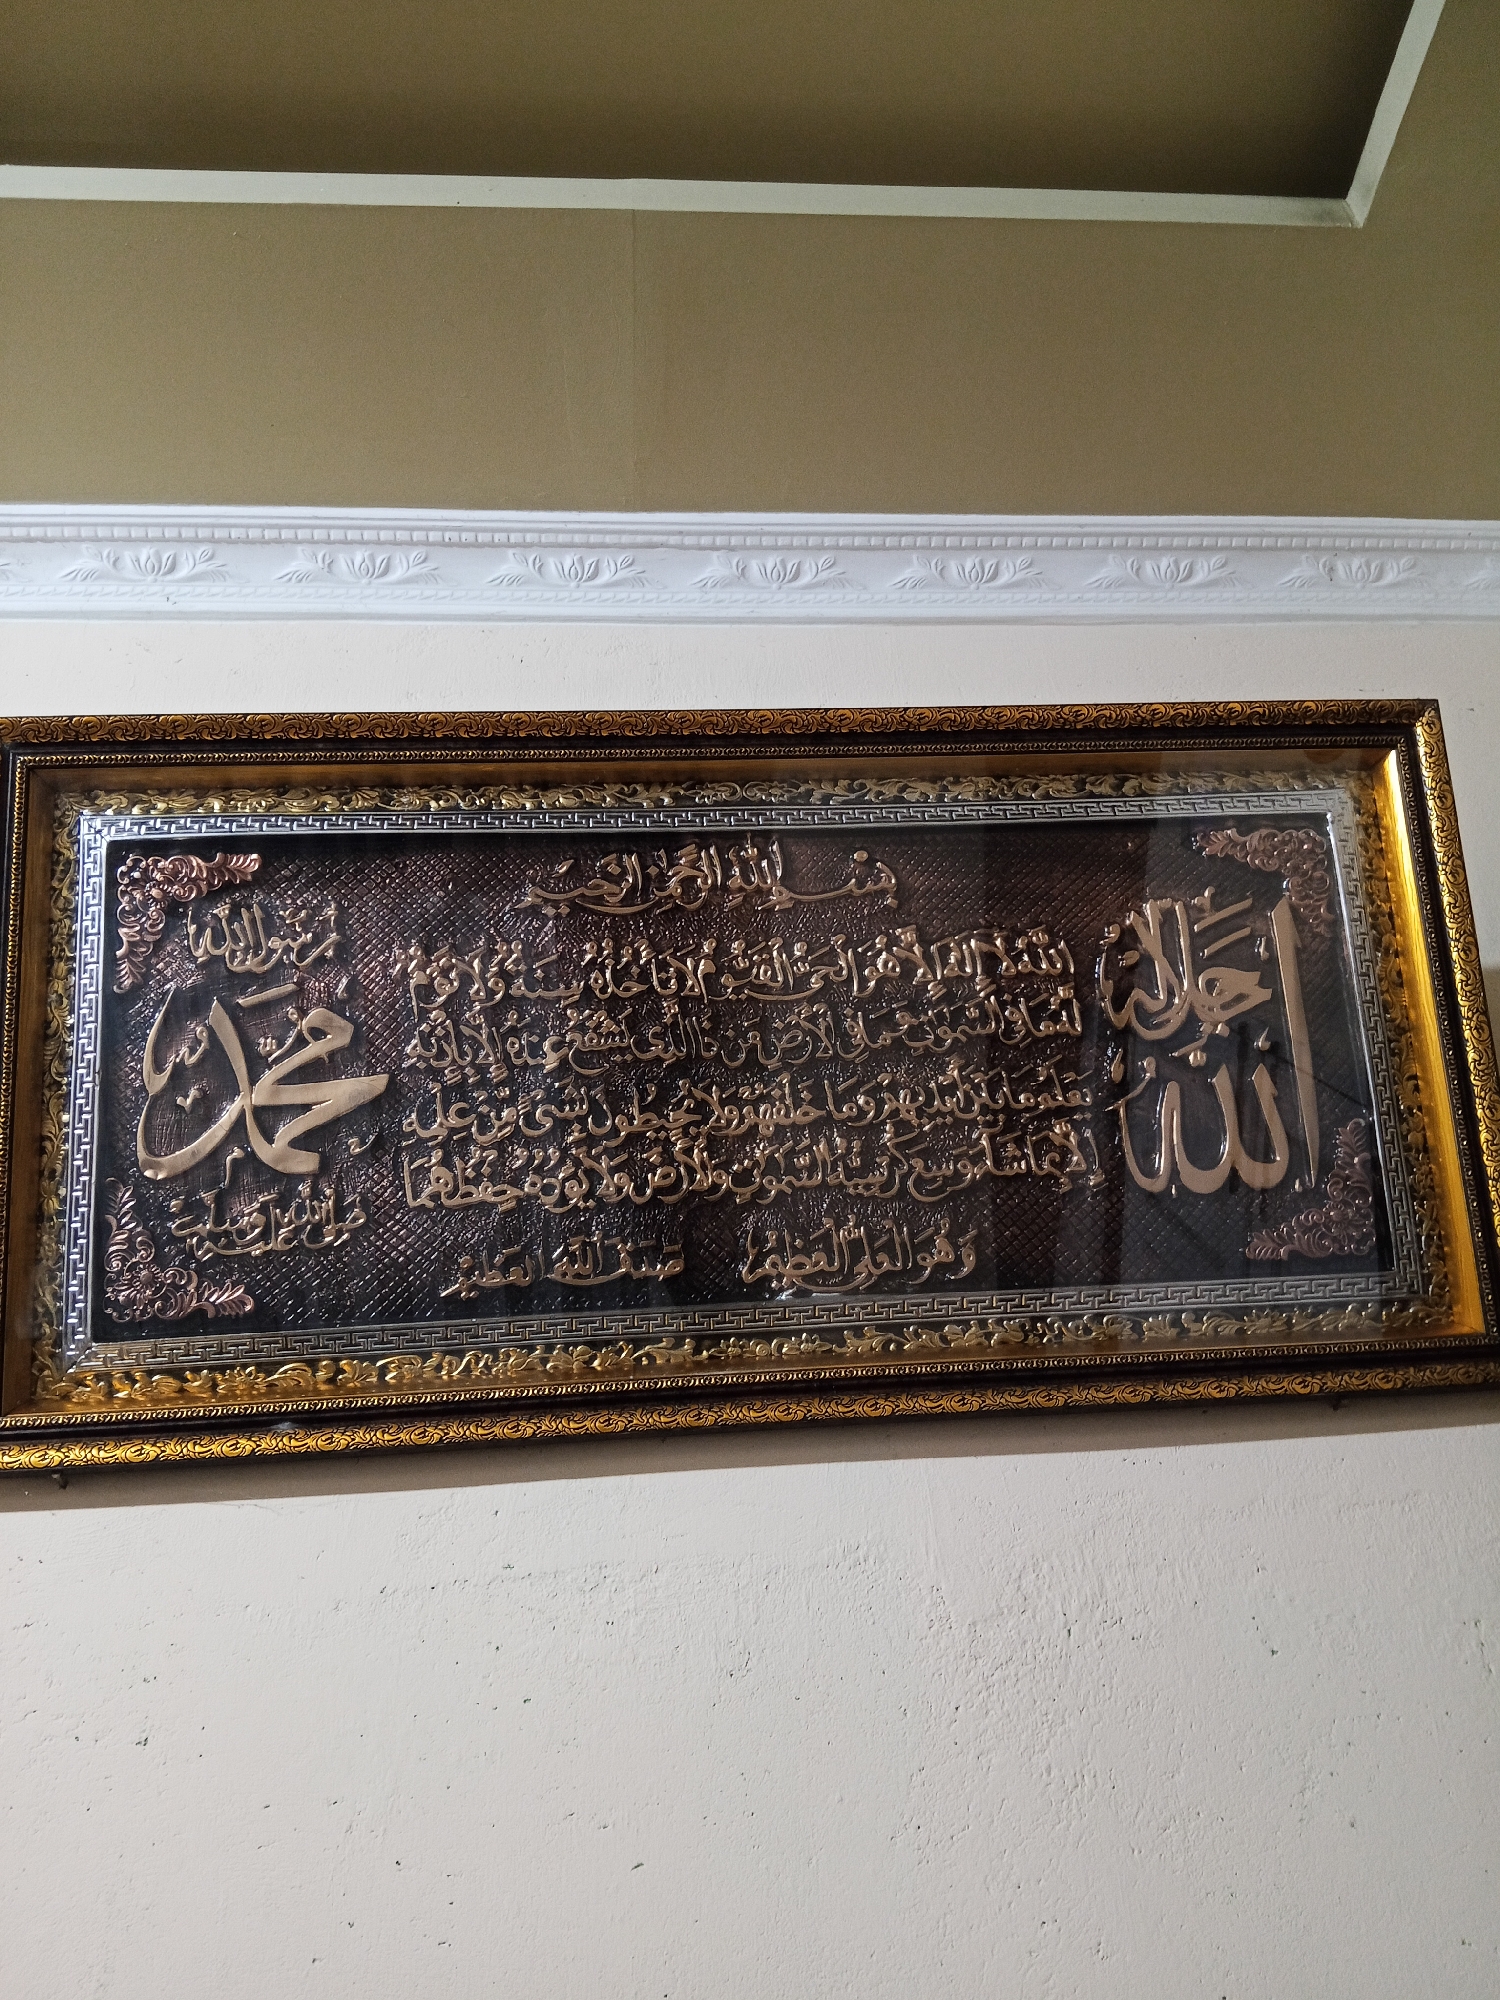 بِسْمِ اللهِ الرَّحْمٰنِ الرَّحِيمِ
اَللهُ لَا إِلٰهَ إِلَّا هُوَ الْحَيُّ الْقَيُّومُ لَا تَأْخُذُهُ سِنَةٌ وَلَا نَوْمٌ
لَهُ مَا فِي السَّمٰوٰتِ وَمَا فِي الْأَرْضِ مَنْ ذَا الَّذِي يَشْفَعُ عِنْدَهُ إِلَّا بِإِذْنِهِ
يَعْلَمُ مَا بَيْنَ أَيْدِيهِمْ وَمَا خَلْفَهُمْ وَلَا يُحِيطُونَ بِشَيْءٍ مِّنْ عِلْمِهِ
إِلَّا بِمَا شَاءَ وَسِعَ كُرْسِيُّهُ السَّمٰوٰتِ وَالْأَرْضَ وَلَا يَئُودُهُ حِفْظُهُمَا
وَهُوَ الْعَلِيُّ الْعَظِيمُ صَدَقَ اللهُ الْعَظِيمُ
اللّٰه
جَلَّ جَلَالُهُ
رَسُولُ اللهِ
مُحَمَّد
صَلَّى اللهُ عَلَيْهِ وَسَلَّمَ